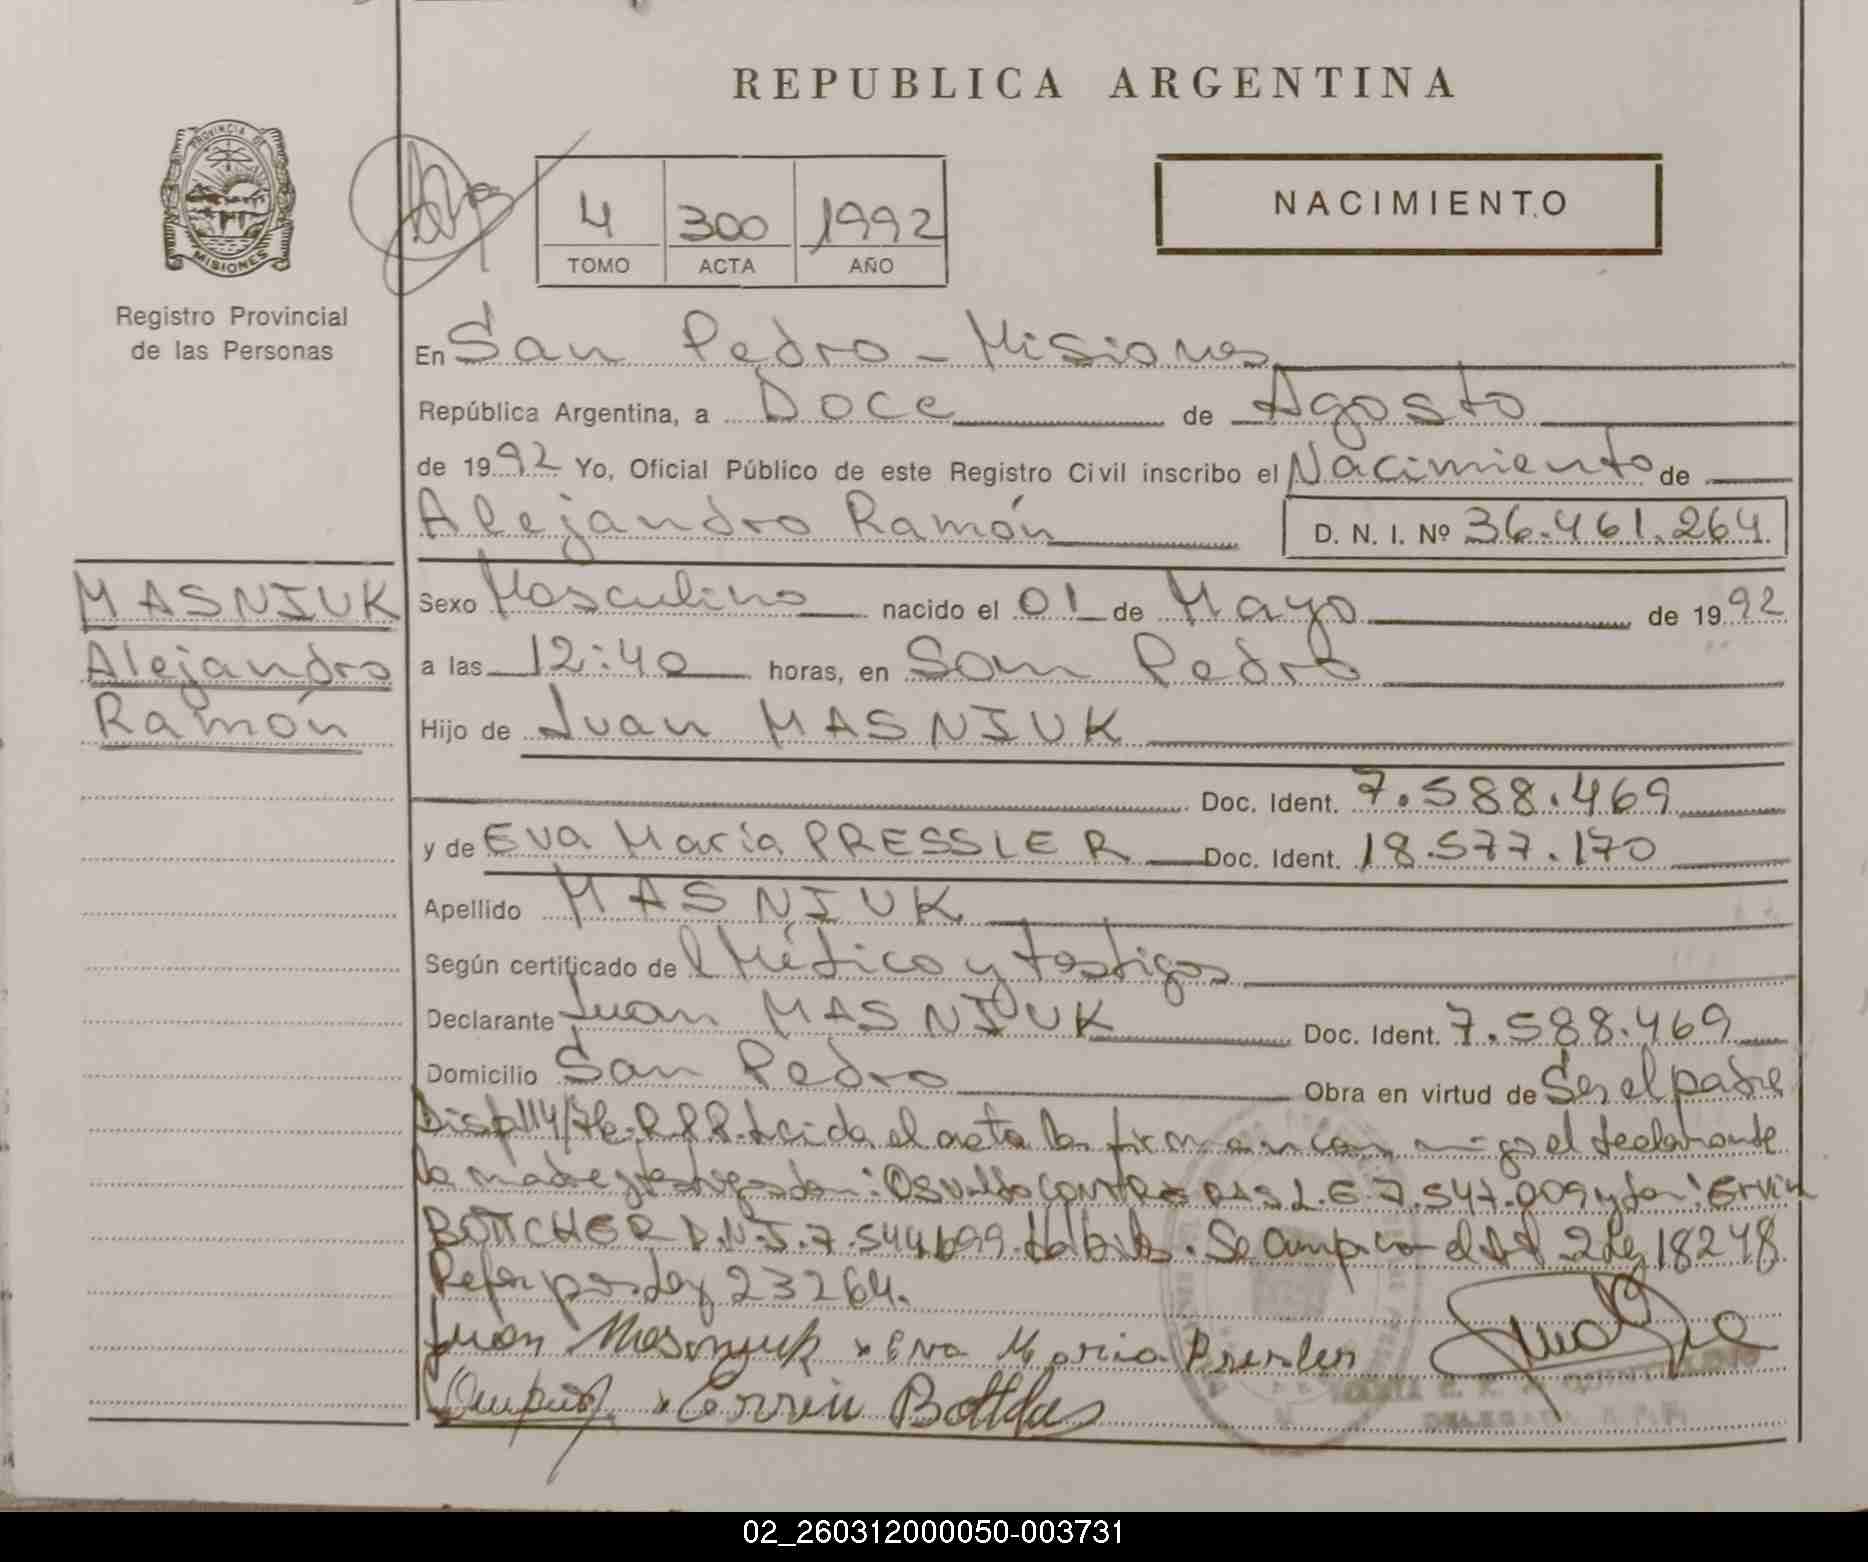 REPUBLICA ARGENTINA
PROVINCIA DE
MISIONES
Registro Provincial
de las Personas
4 300 1992
TOMO ACTA AÑO
NACIMIENTO
En San Pedro - Misiones
República Argentina, a Doce de Agosto
de 1992 Yo, Oficial Público de este Registro Civil inscribo el Nacimiento de
Alejandro Ramón D. N. I. Nº 36.461.264
MASNIUK
Alejandro
Ramón
Sexo Masculino nacido el 01 de Mayo de 1992
a las 12:40 horas, en San Pedro
Hijo de Juan MASNIUK
Doc. Ident. 7.588.469
y de Eva María PRESSLER Doc. Ident. 18.577.170
Apellido MASNIUK
Según certificado del Médico y testigos
Declarante Juan MASNIUK Doc. Ident. 7.588.469
Domicilio San Pedro Obra en virtud de Ser el padre
Disp 114/ R.P.P. Leida el acta la firman conmigo el declarante
la madre y testigos don: Osvaldo CONTRERAS L.E 7.547.009 y don: Ervin
BOTTCHER D.N.I. 7.544.699. Habiles. Se cumplio el Art. 2 Ley 18248
Refor por Ley 23264.
Juan Masniuk Eva Maria Pressler
DELEGADA R.P.P.
02_260312000050-003731